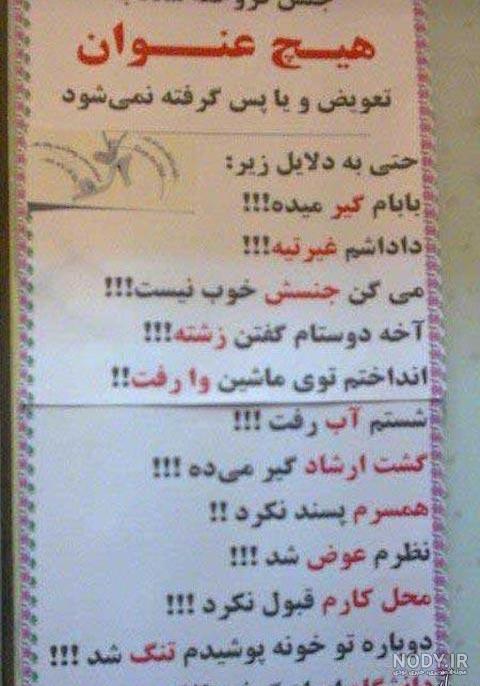 جنس فروخته شده به
هیچ عنوان
تعویض و یا پس گرفته نمی‌شود
حتی به دلایل زیر:
بابام گیر میده!!!
داداشم غیرتیه!!!
می گن جنسش خوب نیست!!!
آخه دوستام گفتن زشته!!!
انداختم توی ماشین وا رفت!!
شستم آب رفت !!!
گشت ارشاد گیر می‌ده !!!
همسرم پسند نکرد !!
نظرم عوض شد !!!
محل کارم قبول نکرد !!!
دوباره تو خونه پوشیدم تنگ شد !!!
NODY.IR